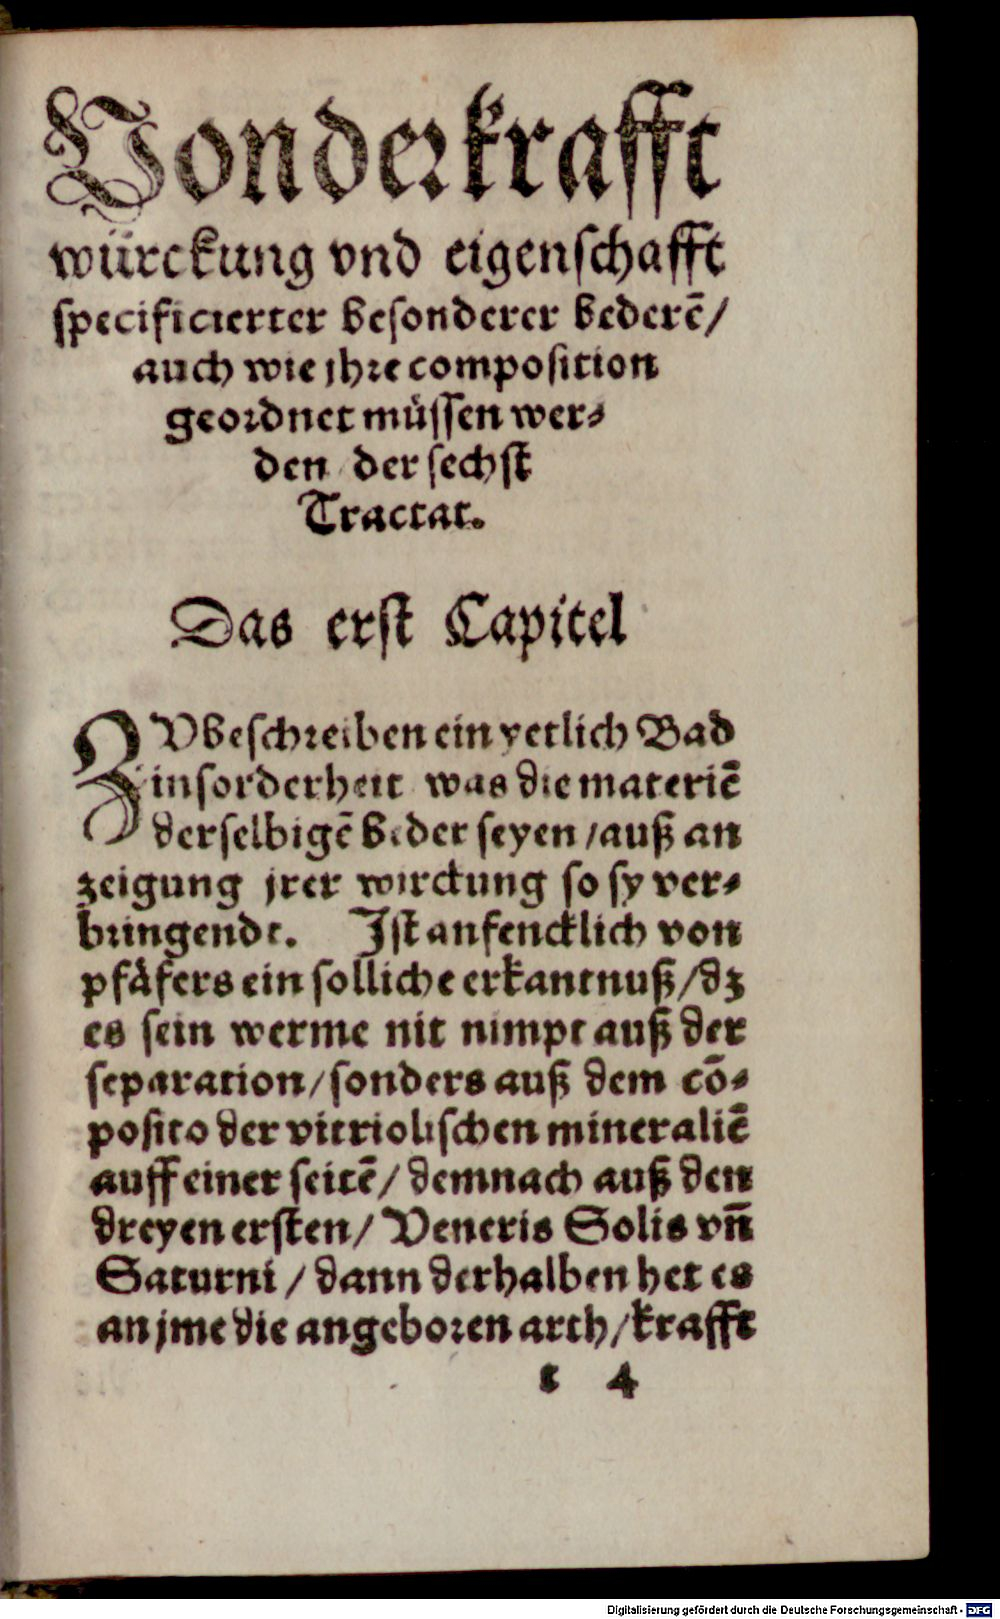 Von der krafft
würckung vnd eigenschafft
specificierter besonderer bederē/
auch wie jhre composition
geordnet müssen wer⸗
den der sechst
Tractat.
Das erst Capitel
ZV beschreiben ein yetlich Bad
insorderheit was die materiē
derselbigē beder seyen / auß an
zeigung jrer wirckung so sy ver⸗
bringendt. Ist anfencklich von
pfåfers ein solliche erkantnuß / dz
es sein werme nit nimpt auß der
separation / sonders auß dem cō⸗
posito der vitriolischen mineraliē
auff einer seitē / demnach auß den
dreyen ersten / Veneris Solis vn̄
Saturni / dann derhalben het es
an jme die angeboren arth / krafft
t 4
Digitalisierung gefördert durch die Deutsche Forschungsgemeinschaft - DFG